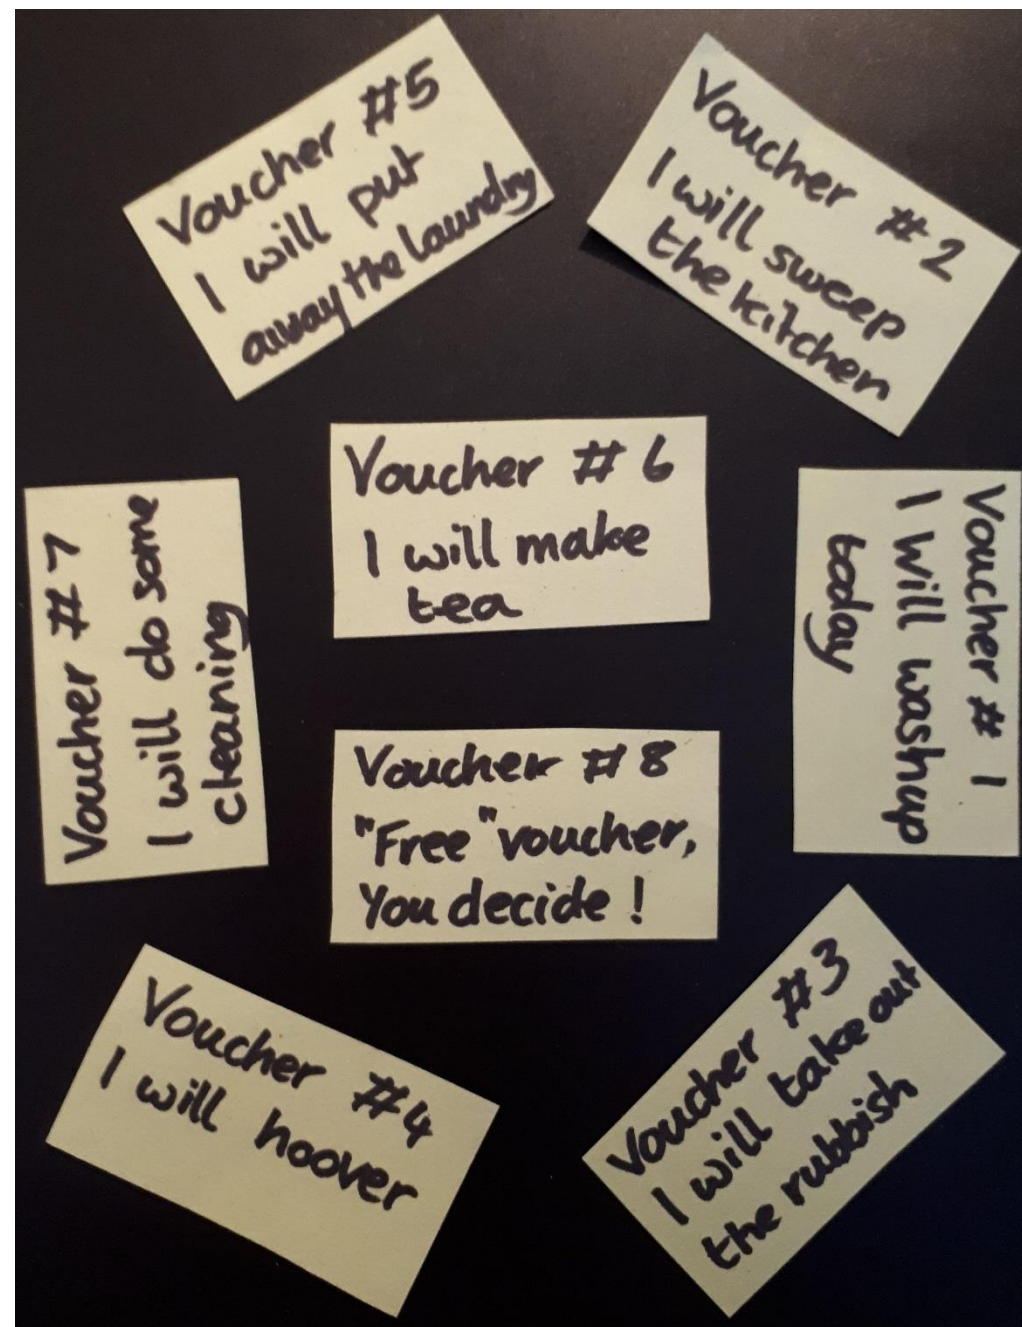 Voucher #5
I will put
away the laundry
Voucher #2
I will sweep
the kitchen
Voucher #7
I will do some
cleaning
Voucher #6
I will make
tea
Voucher #1
I will washup
today
Voucher #8
"Free" voucher,
You decide!
Voucher #4
I will hoover
Voucher #3
I will take out
the rubbish